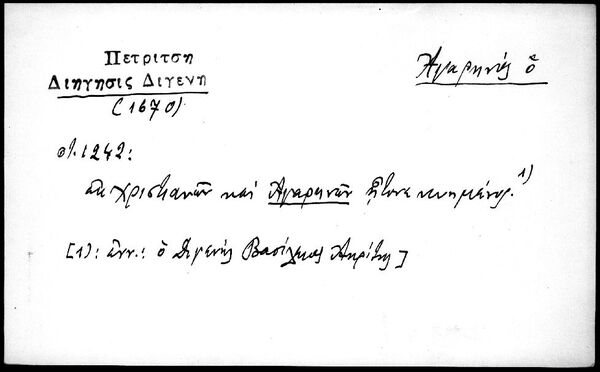 Πετριτση
Διηγησις Διγενη
(1670)
Ἀγαρηνός ὁ
στ. 1242:
ἐκ χριστιανῶν καί Ἀγαρηνῶν ἤτονε καημένος.¹⁾
[1): ἐνν.: ὁ Διγενής Βασίλειος Ἀκρίτης]